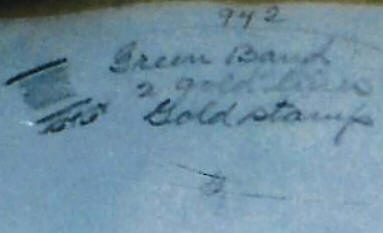 942
Green Band
2 gold lines
Gold stamp